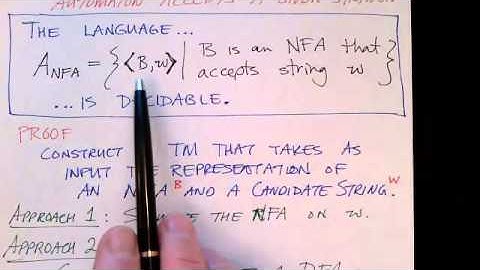 AUTOMATON ACCEPTS A GIVEN STRING
THE LANGUAGE...
A_NFA = { ⟨B,w⟩ | B is an NFA that accepts string w }
... IS DECIDABLE.
PROOF
CONSTRUCT A TM THAT TAKES AS
INPUT THE REPRESENTATION OF
AN NFA B AND A CANDIDATE STRING. w
APPROACH 1: THE NFA ON w.
APPROACH 2
A DFA